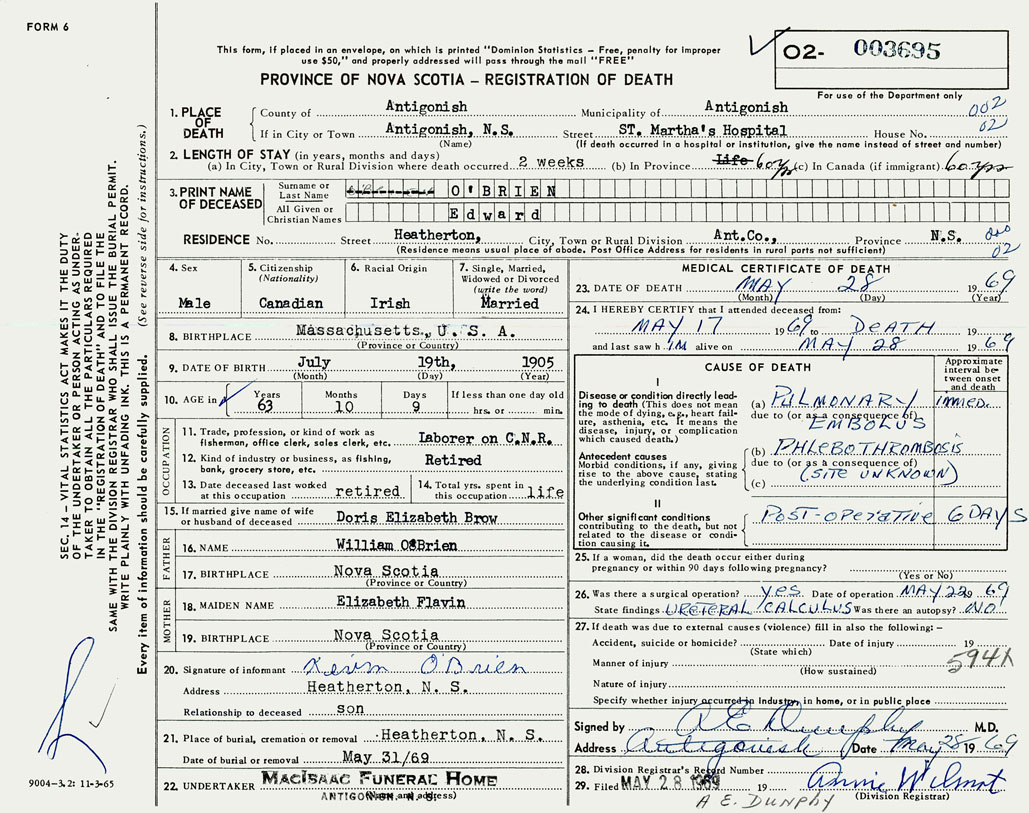 FORM 6
This form, if placed in an envelope, on which is printed "Dominion Statistics – Free, penalty for improper
use $50," and properly addressed will pass through the mail "FREE"
O2- 003695
For use of the Department only
PROVINCE OF NOVA SCOTIA – REGISTRATION OF DEATH
1. PLACE OF DEATH County of Antigonish Municipality of Antigonish 002
If in City or Town Antigonish, N.S. Street ST. Martha's Hospital House No. 02
(Name) (If death occurred in a hospital or institution, give the name instead of street and number)
2. LENGTH OF STAY (in years, months and days)
(a) In City, Town or Rural Division where death occurred 2 weeks (b) In Province Life 60 yrs (c) In Canada (if immigrant) 60 yrs
3. PRINT NAME OF DECEASED Surname or Last Name O'BRIEN
All Given or Christian Names Edward
RESIDENCE No. Street Heatherton, City, Town or Rural Division Ant.Co., Province N.S.
(Residence means usual place of abode. Post Office Address for residents in rural parts not sufficient) 02
4. Sex Male
5. Citizenship (Nationality) Canadian
6. Racial Origin Irish
7. Single, Married, Widowed or Divorced (write the word) Married
8. BIRTHPLACE Massachusetts, U.S.A.
(Province or Country)
9. DATE OF BIRTH July 19th, 1905
(Month) (Day) (Year)
10. AGE in Years 63 Months 10 Days 9 If less than one day old hrs. or min.
OCCUPATION
11. Trade, profession, or kind of work as fisherman, office clerk, sales clerk, etc. Laborer on C.N.R.
12. Kind of industry or business, as fishing, bank, grocery store, etc. Retired
13. Date deceased last worked at this occupation retired
14. Total yrs. spent in this occupation life
15. If married give name of wife or husband of deceased Doris Elizabeth Brow
FATHER
16. NAME William O'Brien
17. BIRTHPLACE Nova Scotia
(Province or Country)
MOTHER
18. MAIDEN NAME Elizabeth Flavin
19. BIRTHPLACE Nova Scotia
(Province or Country)
20. Signature of informant Kevin O'Brien
Address Heatherton, N. S.
Relationship to deceased son
21. Place of burial, cremation or removal Heatherton, N. S.
Date of burial or removal May 31/69
22. UNDERTAKER MACISAAC FUNERAL HOME
ANTIGONISH, N. S.
(Name and address)
MEDICAL CERTIFICATE OF DEATH
23. DATE OF DEATH MAY 28 1969
(Month) (Day) (Year)
24. I HEREBY CERTIFY that I attended deceased from:
MAY 17 1969 to DEATH 19
and last saw h IM alive on MAY 28 1969
CAUSE OF DEATH
Approximate interval between onset and death
I
Disease or condition directly leading to death (This does not mean the mode of dying, e.g., heart failure, asthenia, etc. It means the disease, injury, or complication which caused death.)
(a) PULMONARY EMBOLUS immed.
due to (or as a consequence of)
Antecedent causes
Morbid conditions, if any, giving rise to the above cause, stating the underlying condition last.
(b) PHLEBOTHROMBOSIS
due to (or as a consequence of)
(SITE UNKNOWN)
(c)
II
Other significant conditions contributing to the death, but not related to the disease or condition causing it.
POST-OPERATIVE 6 DAYS
25. If a woman, did the death occur either during pregnancy or within 90 days following pregnancy?
(Yes or No)
26. Was there a surgical operation? yes Date of operation MAY 22 1969
State findings URETERAL CALCULUS Was there an autopsy? NO
27. If death was due to external causes (violence) fill in also the following: –
Accident, suicide or homicide? Date of injury 19
(State which)
Manner of injury 594X
(How sustained)
Nature of injury
Specify whether injury occurred in Industry, in home, or in public place
Signed by A E Dunphy M.D.
Address Antigonish Date May 28 1969
28. Division Registrar's Record Number
29. Filed MAY 28 1969 19 Annie Wilmot
(Division Registrar)
A E. DUNPHY
SEC. 14 – VITAL STATISTICS ACT MAKES IT THE DUTY
OF THE UNDERTAKER OR PERSON ACTING AS UNDER-
TAKER TO OBTAIN ALL THE PARTICULARS REQUIRED
IN THE "REGISTRATION OF DEATH" AND TO FILE THE
SAME WITH THE DIVISION REGISTRAR WHO SHALL ISSUE THE BURIAL PERMIT.
WRITE PLAINLY WITH UNFADING INK. THIS IS A PERMANENT RECORD.
Every item of information should be carefully supplied. (See reverse side for instructions.)
9004-3.2: 11-3-65